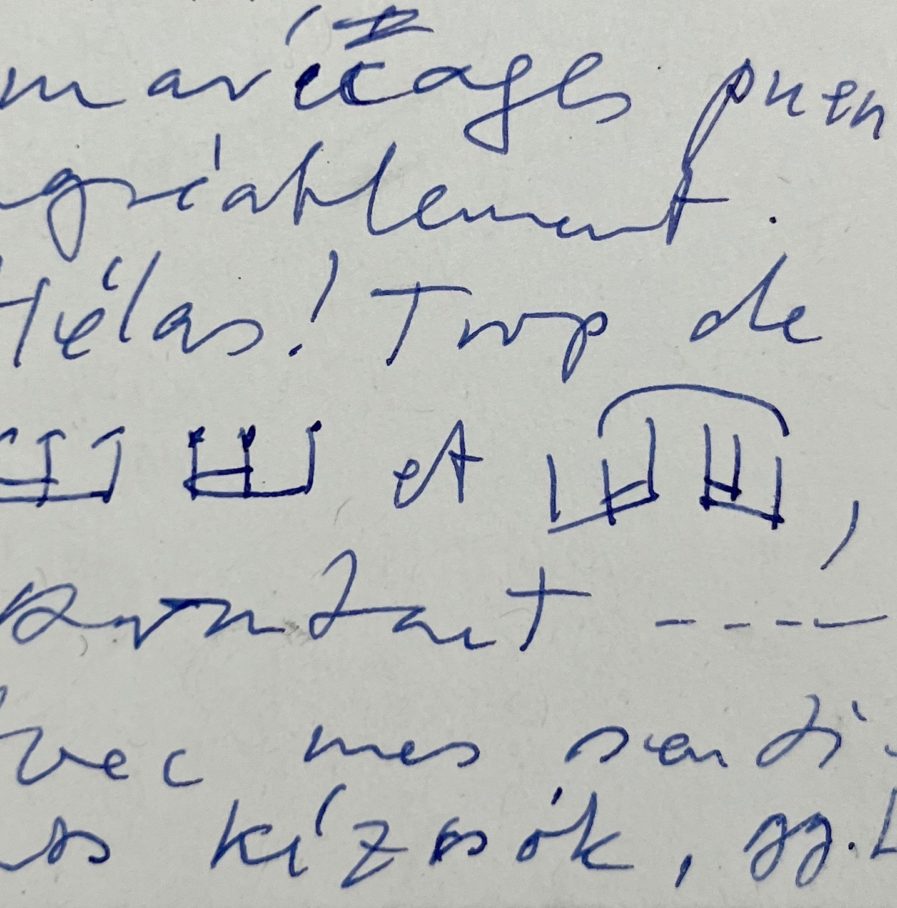 marécages puen
agréablement.
Hélas! Trop de
et ,
pourtant ----
Avec mes senti-
kézsók, gg.L